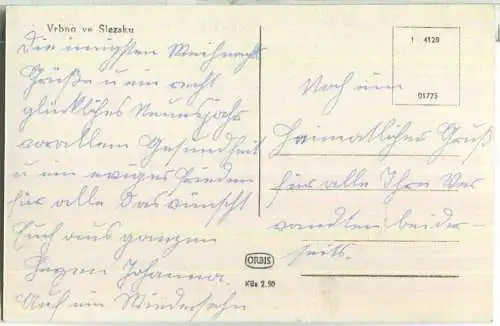 Vrbno ve Slezsku
Die innigsten Weihnachts
Grüße u ein recht
glückliches Neuesjahr
vorallem Gesundheit
u ein ewiger Frieden
für alle das wünscht
Euch aus ganzen
Herzen Johanna.
Auf ein Wiedersehn
1 4128
01775
Noch ein
heimatlicher Gruß
für alle Ihre Ver
wandten beider-
seits.
ORBIS
Kčs 2.50